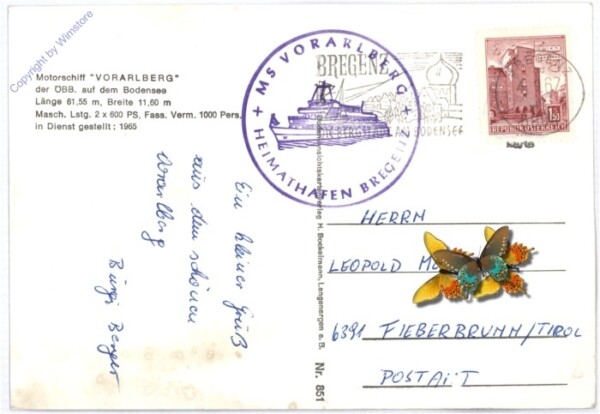 Copyright by Wimstore
Motorschiff "VORARLBERG"
der ÖBB. auf dem Bodensee
Länge 61,55 m, Breite 11,60 m
Masch. Lstg. 2 x 600 PS, Fass. Verm. 1000 Pers.
in Dienst gestellt: 1965
+ MS VORARLBERG +
HEIMATHAFEN BREGENZ
BREGENZ
AM BODENSEE
REPUBLIK ÖSTERREICH
1.50
Ein kleiner Gruß
aus dem schönen
Vorarlberg
Burgi Berger
Ansichtskartenverlag H. Bockelmann, Langenargen a. B.
Nr. 851
HERRN
LEOPOLD
6391 FIEBERBRUNN/TIROL